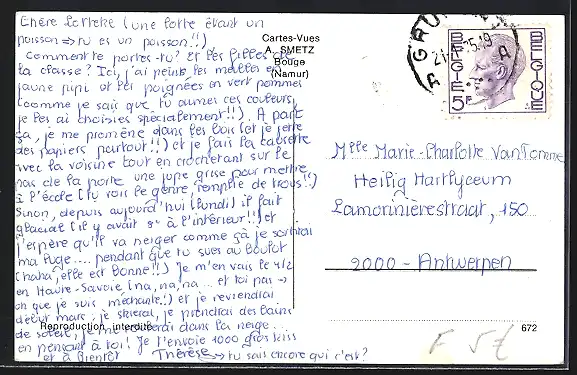 Chère Lorlette (une lotte étant un
poisson ⇒ tu es un poisson!!)
Comment te portes-tu? Et les filles de
la classe? Ici, j'ai peint les meubles en
jaune pipi et les poignées en vert pommes
(comme je sais que tu aimes ces couleurs,
je les ai choisies spécialement!!). A part
ça, je me promène dans les bois (et je jette
des papiers partout!!) et je fais la causette
avec la voisine tout en crochetant sur le
pas de la porte une jupe grise pour mettre
à l'école (tu vois le genre, remplie de trous!!)
Sinon, depuis aujourd'hui (lundi) il fait
glacial (il y avait 8° à l'intérieur!!) et
j'espère qu'il va neiger comme ça je sortirai
ma luge.... pendant que tu sues au boulot
(haha, elle est bonne!!) Je m'en vais le 4/2
en Haute-Savoie (na, na, na... et toi pas →
oh que je suis méchante!) et je reviendrai
début mars. je skierai, je prendrai des bains
de soleil, je me roulerai dans la neige...
en pensant à toi! Je t'envoie 1000 gros kiss
et à bientôt Thérèse → tu sais encore qui c'est?
Cartes-Vues
A. SMETZ
Bouge
(Namur)
Reproduction interdite
672
BELGIE BELGIQUE
5F
Mlle Marie-Charlotte VanTomme
Heilig Hartlyceum
Lamorinièrestraat, 150
2000 - Antwerpen